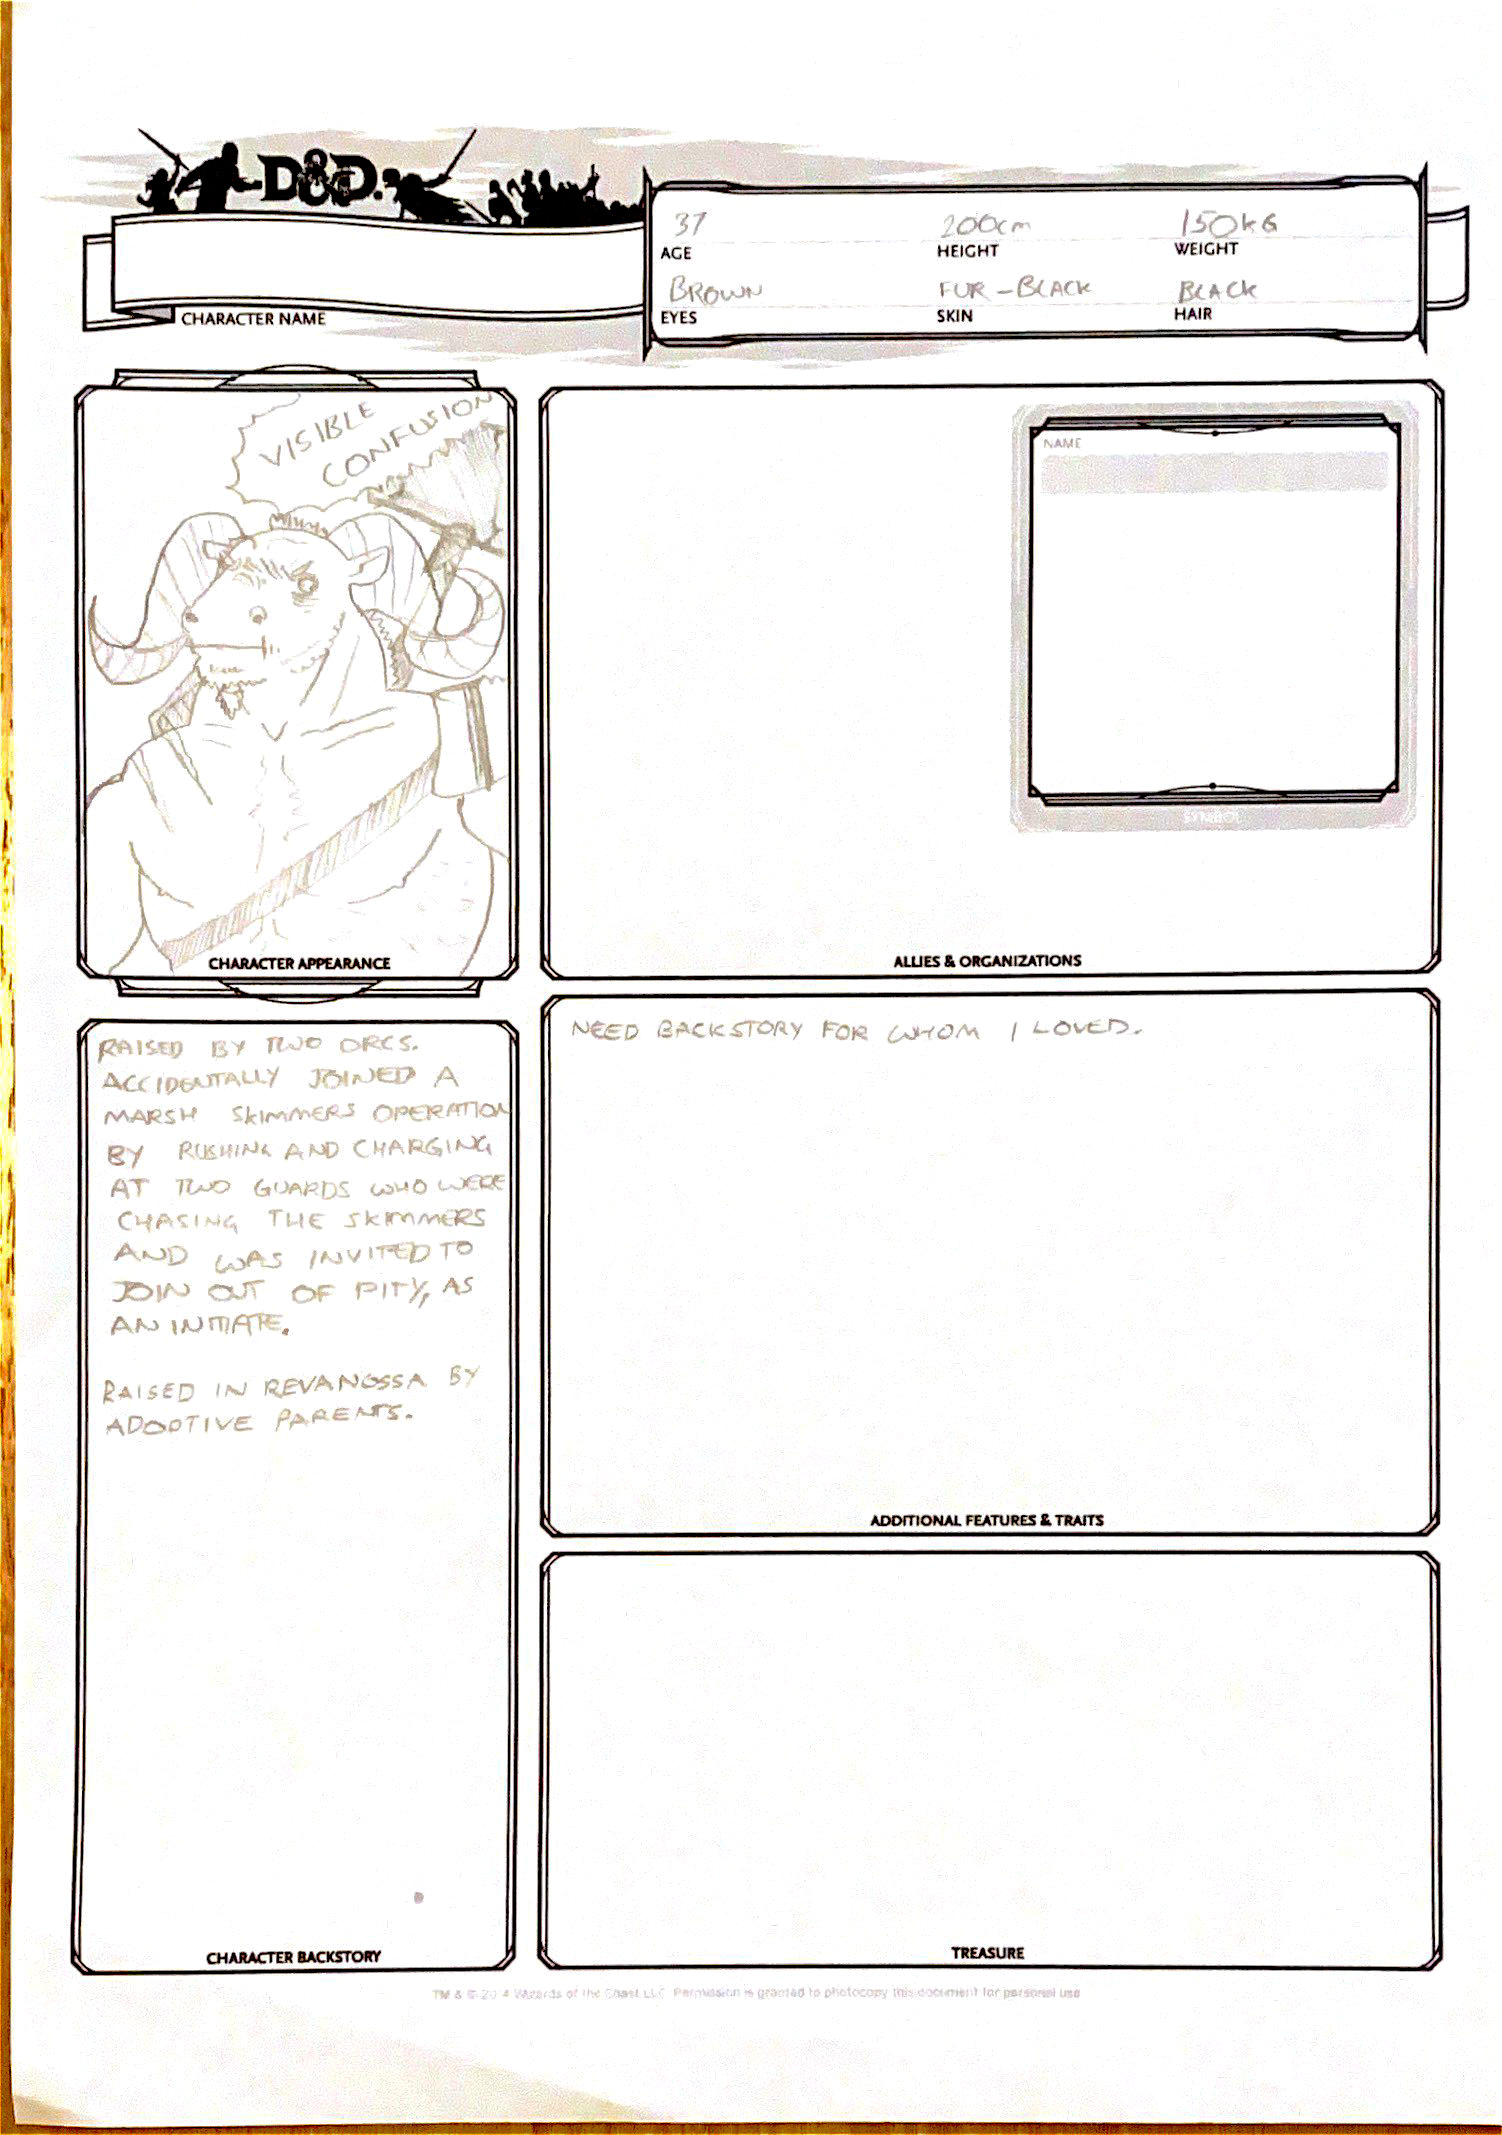 D&D.
37
200cm
150KG
AGE
HEIGHT
WEIGHT
BROWN
FUR - BLACK
BLACK
EYES
SKIN
HAIR
CHARACTER NAME
VISIBLE
CONFUSION
CHARACTER APPEARANCE
NAME
SYMBOL
ALLIES & ORGANIZATIONS
RAISED BY TWO ORCS.
ACCIDENTALLY JOINED A
MARSH SKIMMERS OPERATION
BY RUSHING AND CHARGING
AT TWO GUARDS WHO WERE
CHASING THE SKIMMERS
AND WAS INVITED TO
JOIN OUT OF PITY, AS
AN INITIATE.
RAISED IN REVANOSSA BY
ADOPTIVE PARENTS.
CHARACTER BACKSTORY
NEED BACKSTORY FOR WHOM I LOVED.
ADDITIONAL FEATURES & TRAITS
TREASURE
TM & © 2014 Wizards of the Coast LLC. Permission is granted to photocopy this document for personal use.